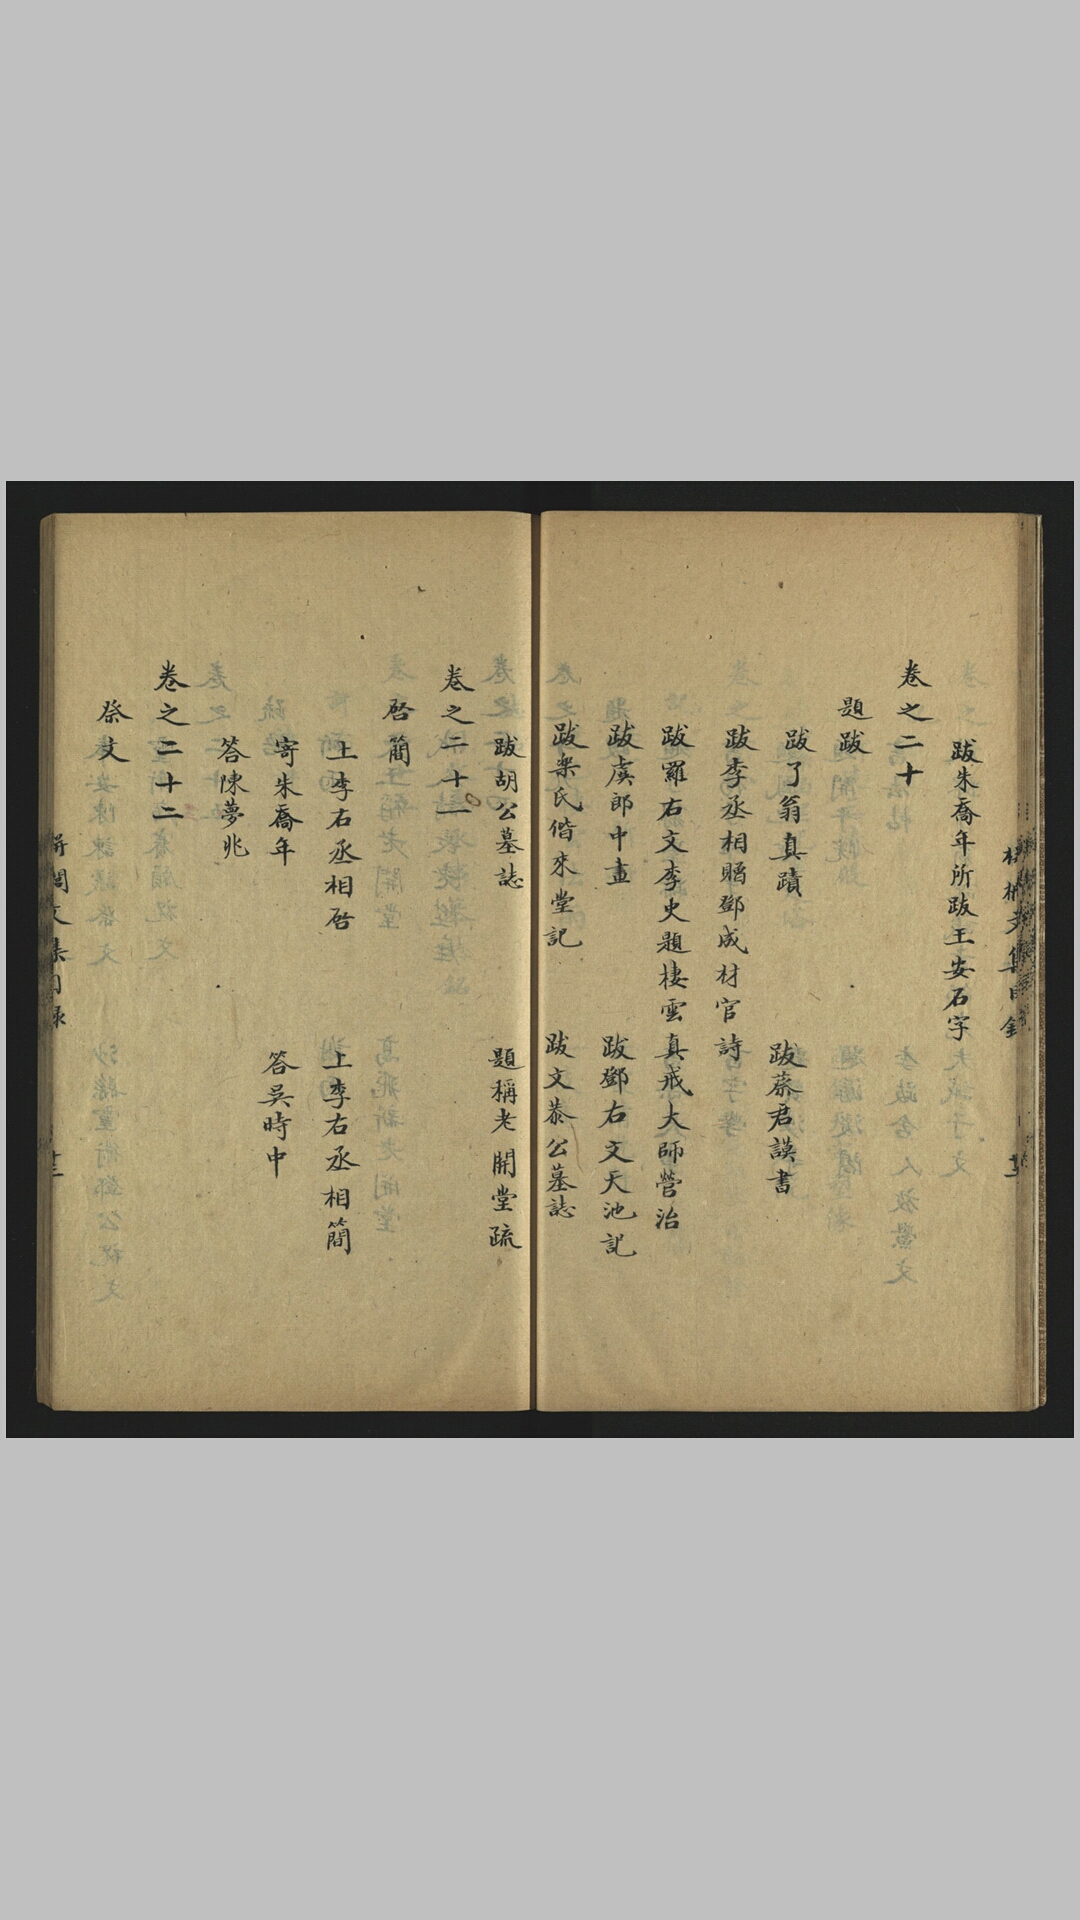 跋朱喬年所跋王安石字
卷之二十
題跋
跋了翁真蹟　跋蔡君謨書
跋李丞相贈鄧成材官詩
跋羅右文李史題棲雲真戒大師營治
跋虞郎中畫　跋鄧右文天池記
跋樂氏偕來堂記　跋文恭公墓誌
跋胡公墓誌　題稱老開堂疏
卷之二十一
啓簡
上李右丞相啓　上李右丞相簡
寄朱喬年　答吳時中
答陳夢兆
卷之二十二
祭文